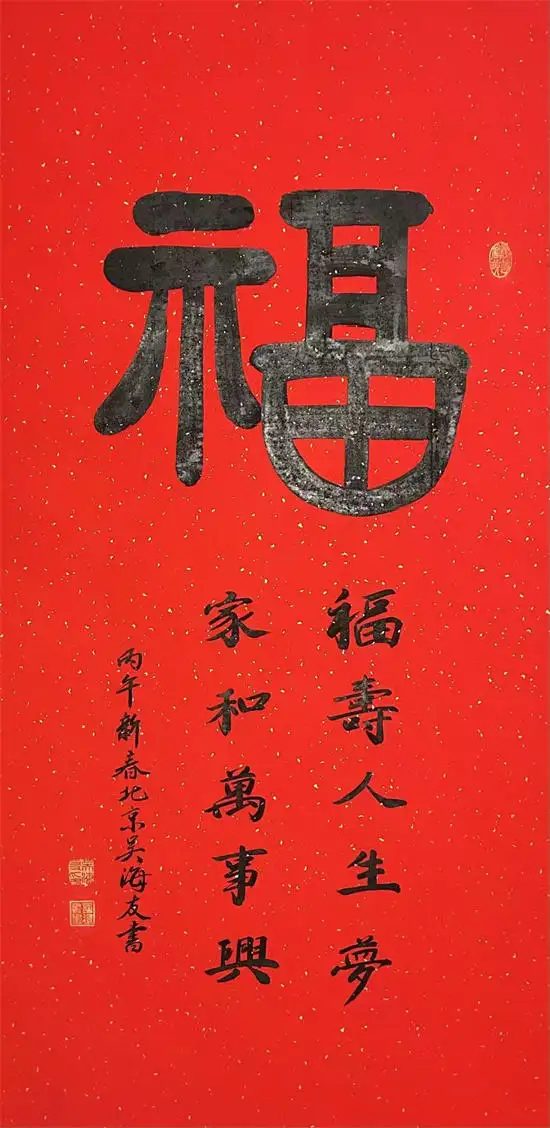 福
福壽人生夢
家和萬事興
丙午新春北京吴海友書